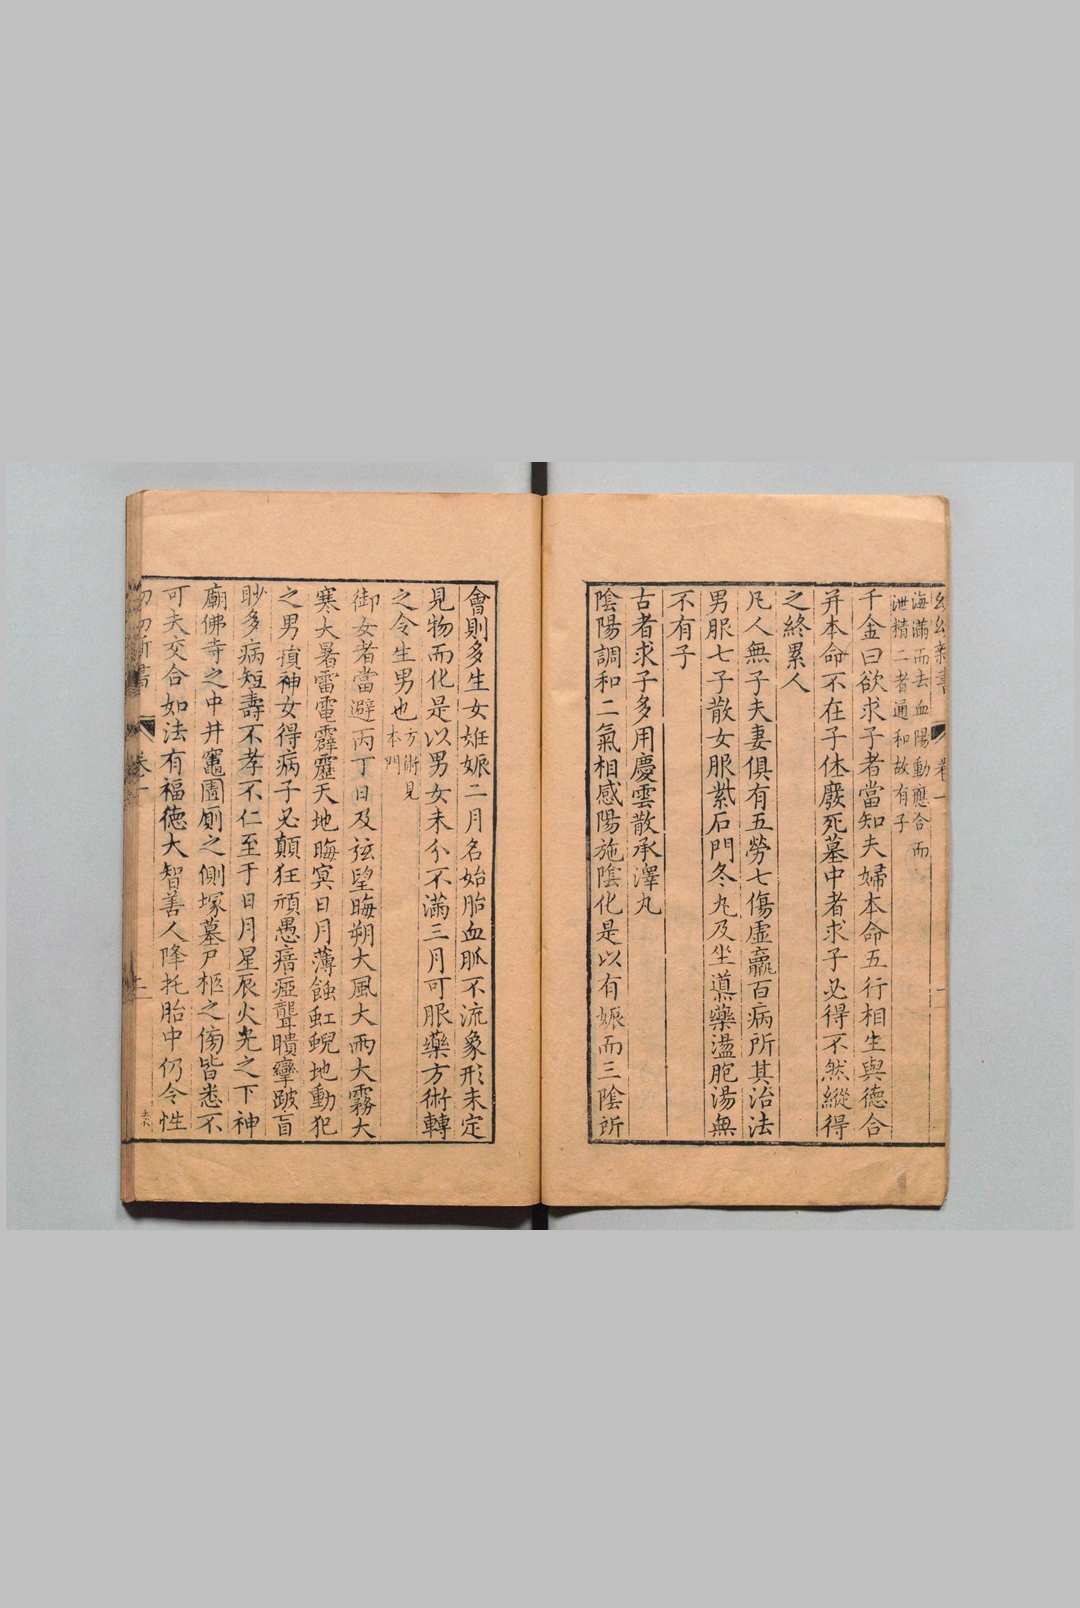 海滿而去血陽動應合而
泄精二者通和故有子
千金曰欲求子者當知夫婦本命五行相生與德合
并本命不在子休廢死墓中者求子必得不然縱得
之終累人
凡人無子夫妻俱有五勞七傷虛羸百病所其治法
男服七子散女服紫石門冬丸及坐導藥盪胞湯無
不有子
古者求子多用慶雲散承澤丸
陰陽調和二氣相感陽施陰化是以有娠而三陰所
會則多生女姙娠二月名始胎血脈不流象形未定
見物而化是以男女未分不滿三月可服藥方術轉
之令生男也方術見本門
御女者當避丙丁日及弦望晦朔大風大雨大霧大
寒大暑雷電霹靂天地晦冥日月薄蝕虹蜺地動犯
之男損神女得病子必顛狂頑愚瘖瘂聾聵攣跛盲
眇多病短壽不孝不仁至于日月星辰火光之下神
廟佛寺之中井竈圊廁之側塚墓尸柩之傍皆悉不
可夫交合如法有福德大智善人降托胎中仍令性
卷一